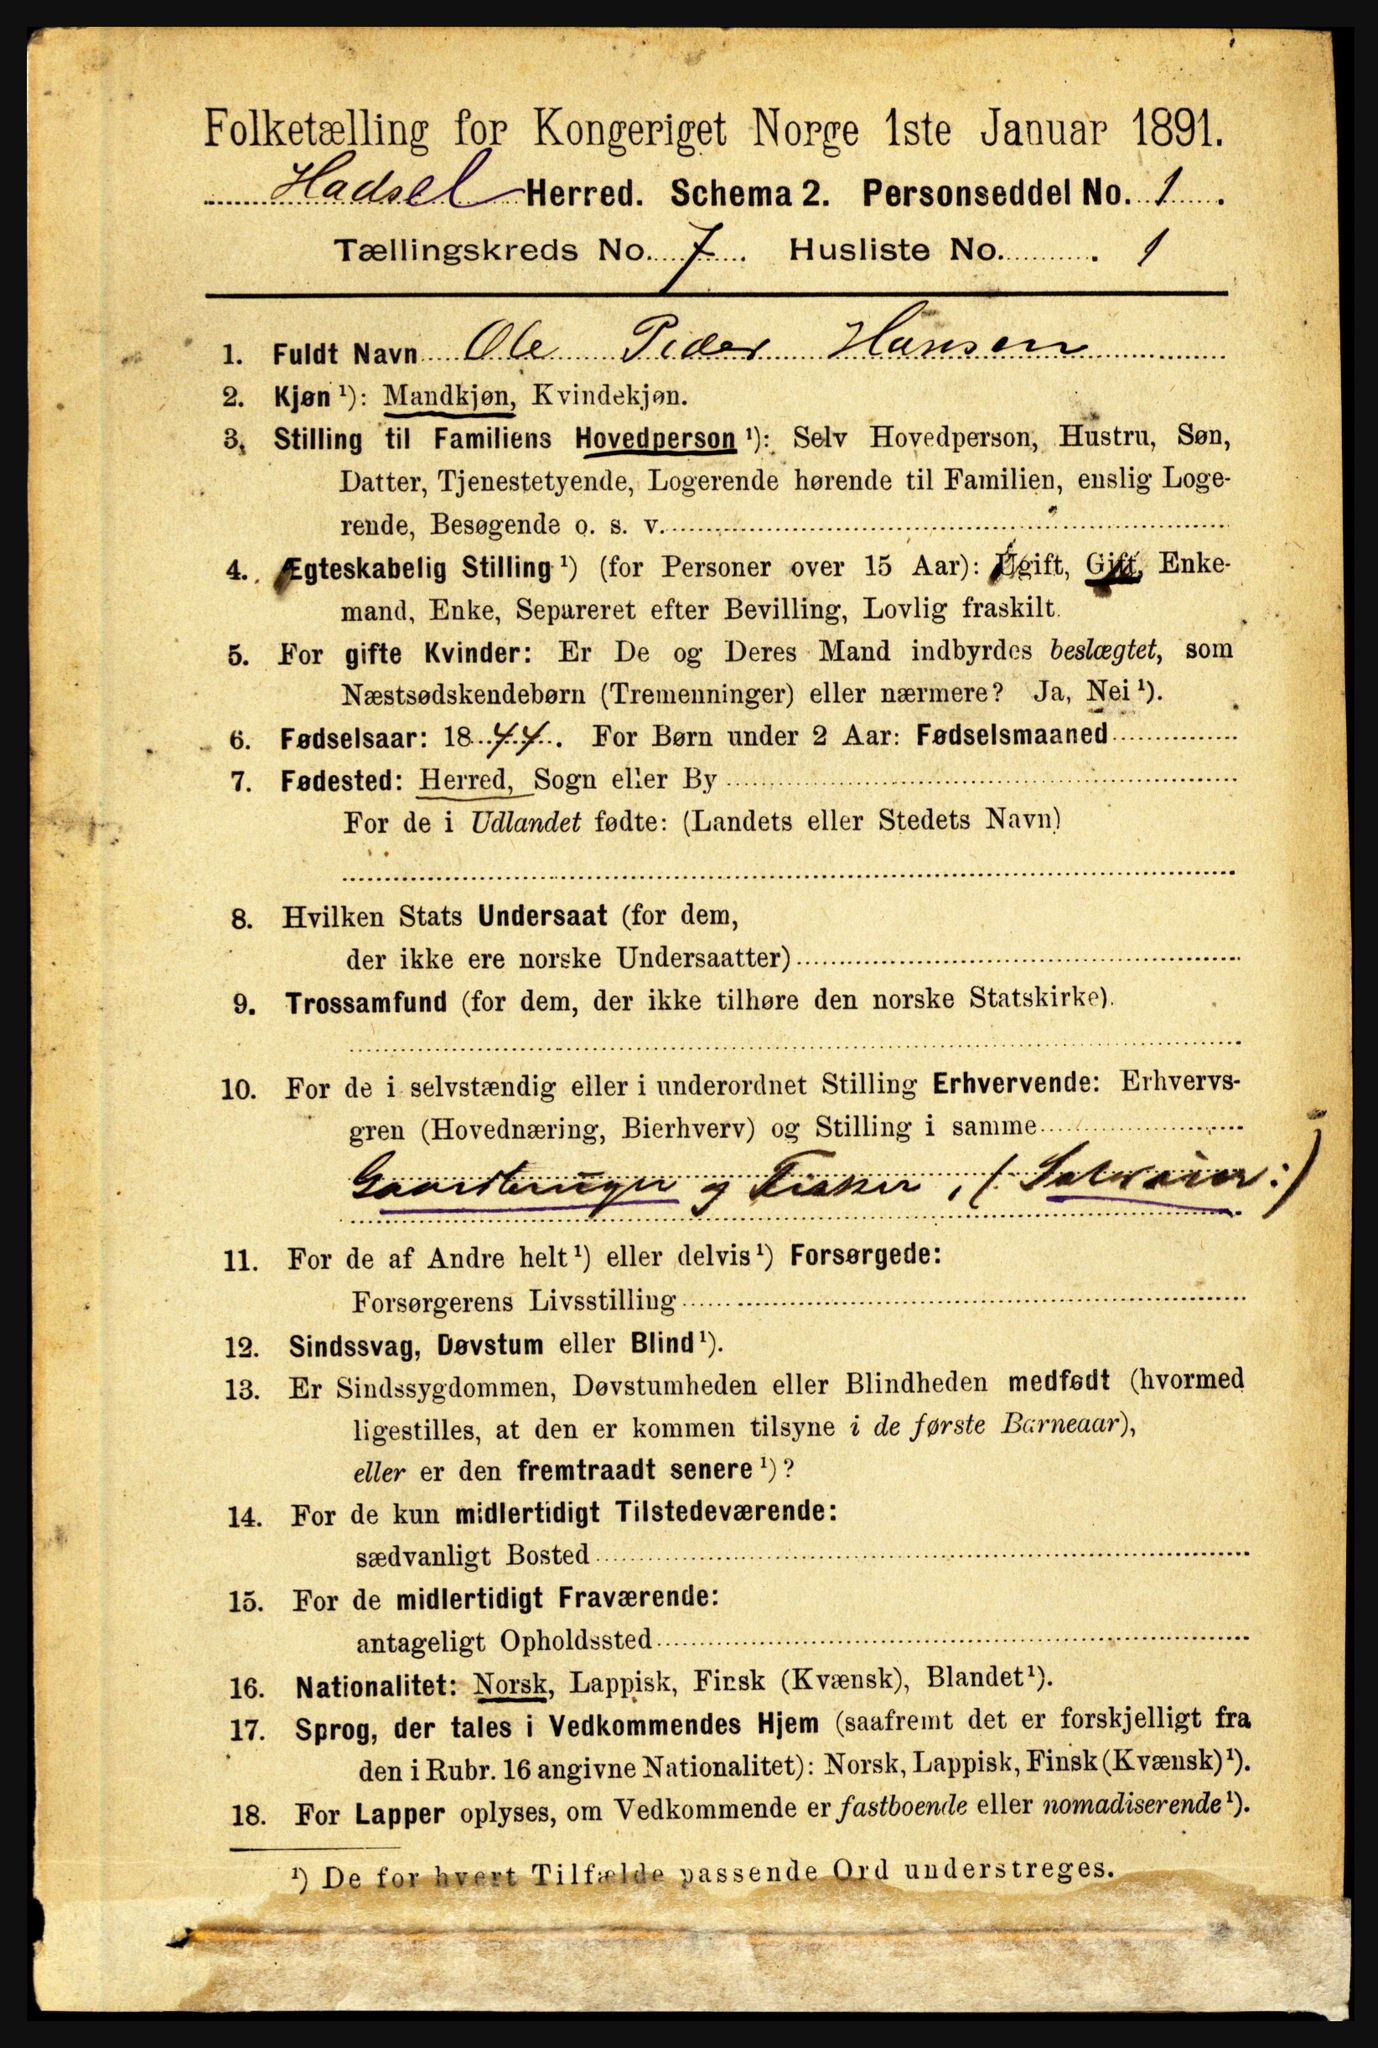 Folketælling for Kongeriget Norge 1ste Januar 1891.
Hadsel Herred. Schema 2. Personseddel No. 1.
Tællingskreds No. 7. Husliste No. 1
1. Fuldt Navn Ole Peder Hansen
2. Kjøn ¹): Mandkjøn, Kvindekjøn.
3. Stilling til Familiens Hovedperson ¹): Selv Hovedperson, Hustru, Søn,
Datter, Tjenestetyende, Logerende hørende til Familien, enslig Loge-
rende, Besøgende o. s. v.
4. Ægteskabelig Stilling ¹) (for Personer over 15 Aar): Ugift, Gift, Enke-
mand, Enke, Separeret efter Bevilling, Lovlig fraskilt.
5. For gifte Kvinder: Er De og Deres Mand indbyrdes beslægtet, som
Næstsødskendebørn (Tremenninger) eller nærmere? Ja, Nei ¹).
6. Fødselsaar: 1844. For Børn under 2 Aar: Fødselsmaaned
7. Fødested: Herred, Sogn eller By
For de i Udlandet fødte: (Landets eller Stedets Navn)
8. Hvilken Stats Undersaat (for dem,
der ikke ere norske Undersaatter)
9. Trossamfund (for dem, der ikke tilhøre den norske Statskirke).
10. For de i selvstændig eller i underordnet Stilling Erhvervende: Erhvervs-
gren (Hovednæring, Bierhverv) og Stilling i samme
Gaardbruger og Fisker, (Selveier:)
11. For de af Andre helt ¹) eller delvis ¹) Forsørgede:
Forsørgerens Livsstilling
12. Sindssvag, Døvstum eller Blind ¹).
13. Er Sindssygdommen, Døvstumheden eller Blindheden medfødt (hvormed
ligestilles, at den er kommen tilsyne i de første Barneaar),
eller er den fremtraadt senere ¹)?
14. For de kun midlertidigt Tilstedeværende:
sædvanligt Bosted
15. For de midlertidigt Fraværende:
antageligt Opholdssted
16. Nationalitet: Norsk, Lappisk, Finsk (Kvænsk), Blandet ¹).
17. Sprog, der tales i Vedkommendes Hjem (saafremt det er forskjelligt fra
den i Rubr. 16 angivne Nationalitet): Norsk, Lappisk, Finsk (Kvænsk) ¹).
18. For Lapper oplyses, om Vedkommende er fastboende eller nomadiserende ¹).
¹) De for hvert Tilfælde passende Ord understreges.